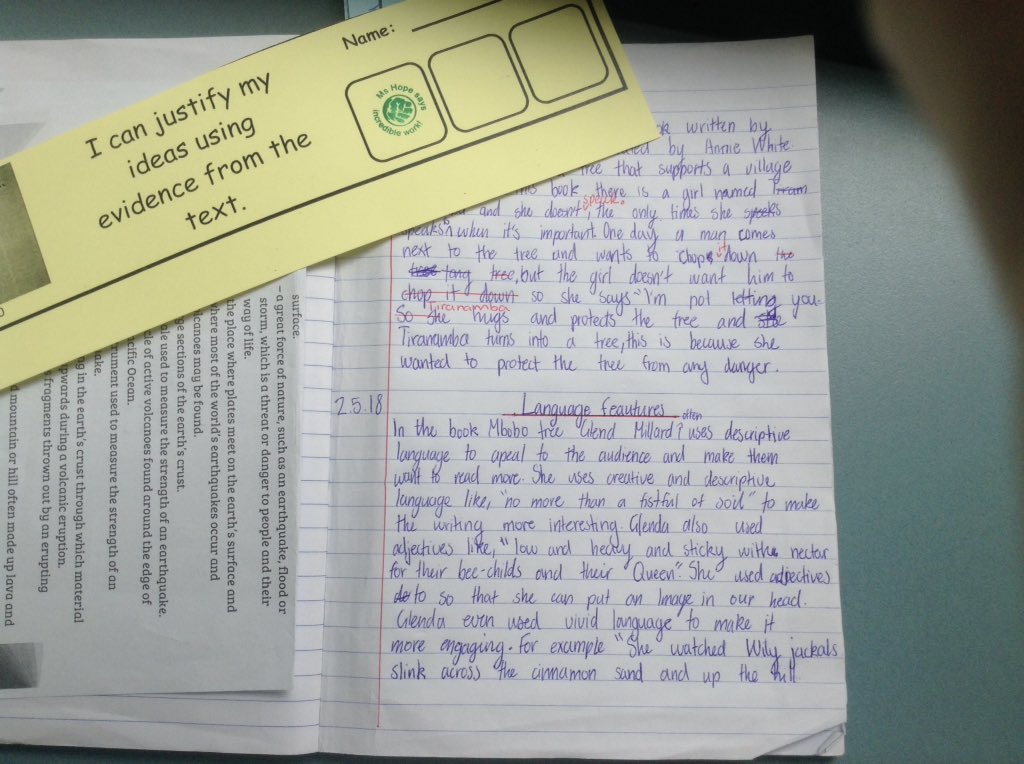 Name:
I can justify my
ideas using
evidence from the
text.
Ms Hope says
incredible work!
written by
by Annie White
tree that supports a village
book there is a girl named
and she doesn't speak. the only times she speeks
speaks when it's important. One day a man comes
next to the tree and wants to chops it down the
tree tang tree, but the girl doesn't want him to
chop it down so she says "I'm not letting you.
So she Tiranamba hugs and protects the tree and she
Tiranamba turns into a tree, this is because she
wanted to protect the tree from any danger.
2.5.18
Language feautures
In the book Mbobo tree Glend Millard? often uses descriptive
language to apeal to the audience and make them
want to read more. She uses creative and descriptive
language like, "no more than a fistful of soil" to make
the writing more interesting. Glenda also used
adjectives like, "low and heavy and sticky with nectar
for their bee-childs and their "Queen". She used adjectives
to so that she can put an Image in our head.
Glenda even used vivid language to make it
more engaging. For example "She watched Wily jackals
slink across the cinnamon sand and up the hill
surface.
– a great force of nature, such as an earthquake, flood or
storm, which is a threat or danger to people and their
way of life.
the place where plates meet on the earth's surface and
where most of the world's earthquakes occur and
volcanoes may be found.
sections of the earth's crust.
used to measure the strength of an earthquake.
of active volcanoes found around the edge of
Ocean.
used to measure the strength of an
in the earth's crust through which material
upwards during a volcanic eruption.
fragments thrown out by an erupting
mountain or hill often made up lava and